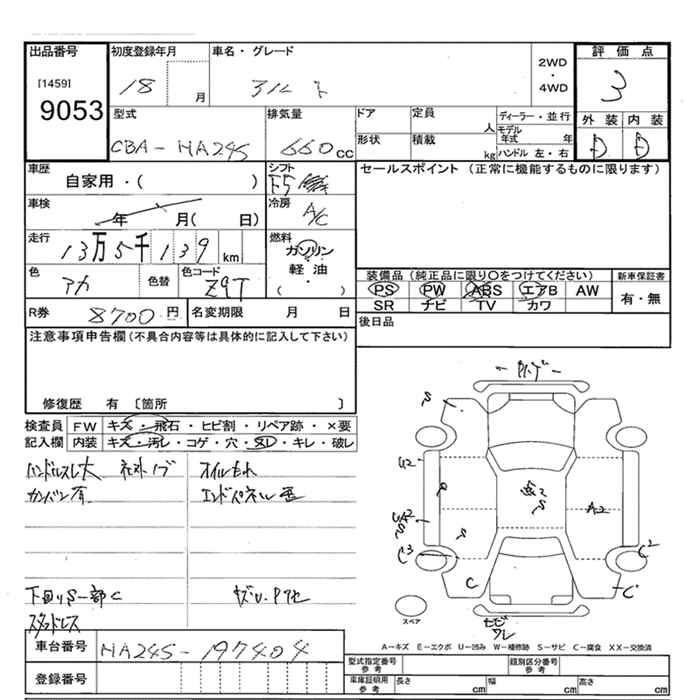 出品番号 初度登録年月 車名・グレード 2WD・4WD 評価点
[1459] 9053 18 月 3
型式 排気量 ドア 定員 人 ディーラー・並行 外装 内装
CBA-HA24S 660cc 形状 積載 kg モデル年式 年 ハンドル 左・右 D D
車歴 シフト セールスポイント(正常に機能するものに限ります)
自家用・( ) F5
車検 冷房
年 月( 日) A/C
走行 燃料
13万5千139km ガソリン
軽油
・
( )
色 色替 色コード 装備品(純正品に限り○をつけてください) 新車保証書
アカ Z9T PS PW ABS エアB AW 有・無
SR ナビ TV カワ
R券 8700円 名変期限 月 日 後日品
注意事項申告欄(不具合内容等は具体的に記入して下さい)
修復歴 有 〔箇所 〕
検査員 FW キズ・飛石・ヒビ割・リペア跡・×要
記入欄 内装 キズ・汚レ・コゲ・穴・スレ・キレ・破レ
ハンドルスレ大 社外ノブ オイルもれ
カンバン有 エンドパネル
下回りS一部C
スタッドレス
S
U2
A2
C3
C2
C
C
スペア
A-キズ E-エクボ U-凹み W-補修跡 S-サビ C-腐食 XX-交換済
車台番号 HA24S-197404
登録番号
型式指定番号 参考 類別区分番号 参考
車庫証明用 参考 長さ cm 幅 cm 高さ cm